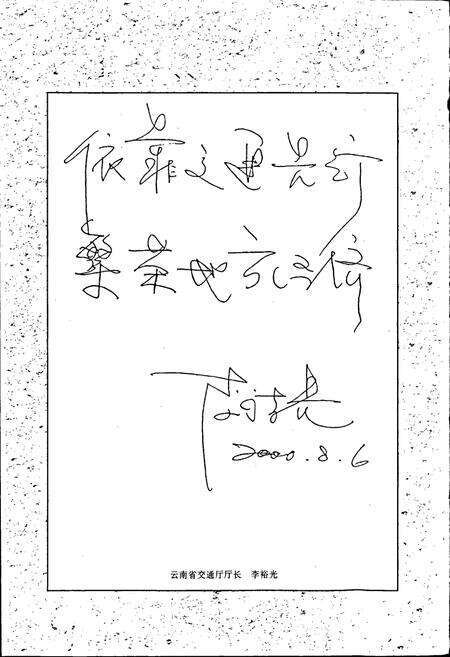 依靠交通
繁荣地方经济
李裕光
2000.8.6
云南省交通厅厅长 李裕光